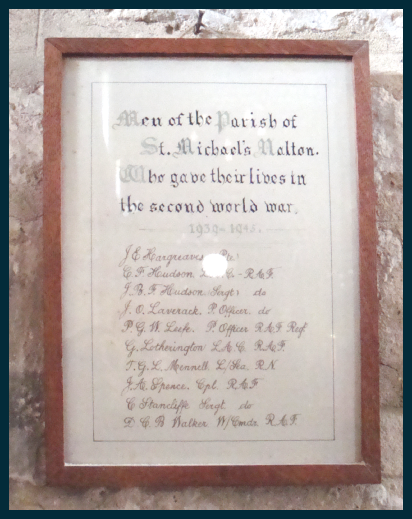 Men of the Parish of
St. Michael's Malton.
Who gave their lives in
the second world war.
1939-1945.
J E Hargreaves Pte
C. F. Hudson R.A.F.
J. B. F. Hudson Sergt do
J. O. Laverack. P. Officer. do
P. G. W. Leefe. P. Officer R.A.F. Reg
G. Lotherington L.A.C. R.A.F.
T. G. L. Mennell. L/Sea. R.N.
J. A. Spence. Cpl. R.A.F.
C Stancliffe Sergt do
D. C. B Walker W/Cmdr R.A.F.